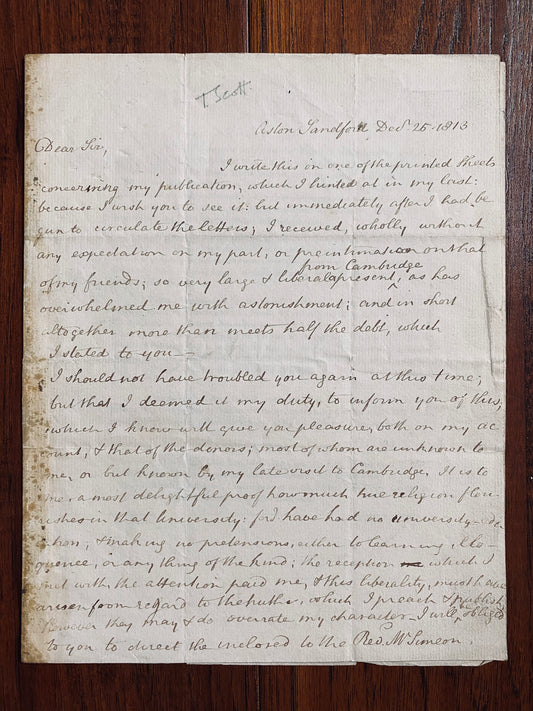 T Scott.
Aston Sandford Decr. 25. 1813
Dear Sir,
I write this on one of the printed Sheets
concerning my publication, which I hinted at in my last:
because I wish you to see it: but immediately after I had be
gun to circulate the letters; I received, wholly without
any expectation on my part, or preintimation on that
of my friends; so very large & liberal a present, from Cambridge as has
overwhelmed me with astonishment; and in short
altogether more than meets half the debt, which
I stated to you—
I should not have troubled you again at this time;
but that I deemed it my duty, to inform you of this,
which I know will give you pleasure, both on my ac
count, & that of the donors; most of whom are unknown to
me, or but known by my late visit to Cambridge. It is to
me a most delightful proof how much true religion flou
rishes in that University: for I have had no university educa
tion, & making no pretensions, either to learning, elo
quence, or any thing of the kind; the reception which I
met with, the attention paid me, & this liberality, must have
arisen from regard to the truths, which I preach & publish
However they may & do overrate my character. I will be obliged
to you to direct the inclosed to the Revd. Mr Simeon.